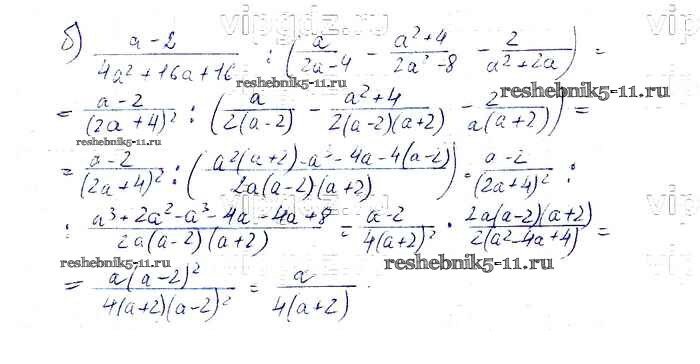 vipgdz.ru
б) (a-2)/(4a²+16a+16) : (a/(2a-4) - (a²+4)/(2a²-8) - 2/(a²+2a)) =
reshebnik5-11.ru reshebnik5-11.ru
= (a-2)/(2a+4)² : (a/(2(a-2)) - (a²+4)/(2(a-2)(a+2)) - 2/(a(a+2))) =
reshebnik5-11.ru
= (a-2)/(2a+4)² : ((a²(a+2)-a³-4a-4(a-2))/(2a(a-2)(a+2))) = (a-2)/(2a+4)² :
: (a³+2a²-a³-4a-4a+8)/(2a(a-2)(a+2)) = (a-2)/(4(a+2)²) · (2a(a-2)(a+2))/(2(a²-4a+4)) =
reshebnik5-11.ru reshebnik5-11.ru
= (a(a-2)²)/(4(a+2)(a-2)²) = a/(4(a+2))